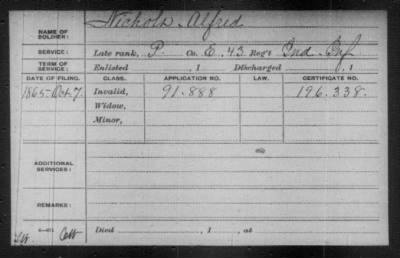 Nichols Alfred
NAME OF SOLDIER:
SERVICE: Late rank, P. Co. E. 43 Reg't Ind. Inf.
TERM OF SERVICE: Enlisted , 1 Discharged , 1
DATE OF FILING. CLASS. APPLICATION NO. LAW. CERTIFICATE NO.
1865-Oct. 7. Invalid, 91.888 196.338.
Widow,
Minor,
ADDITIONAL SERVICES:
REMARKS:
Died , 1 , at